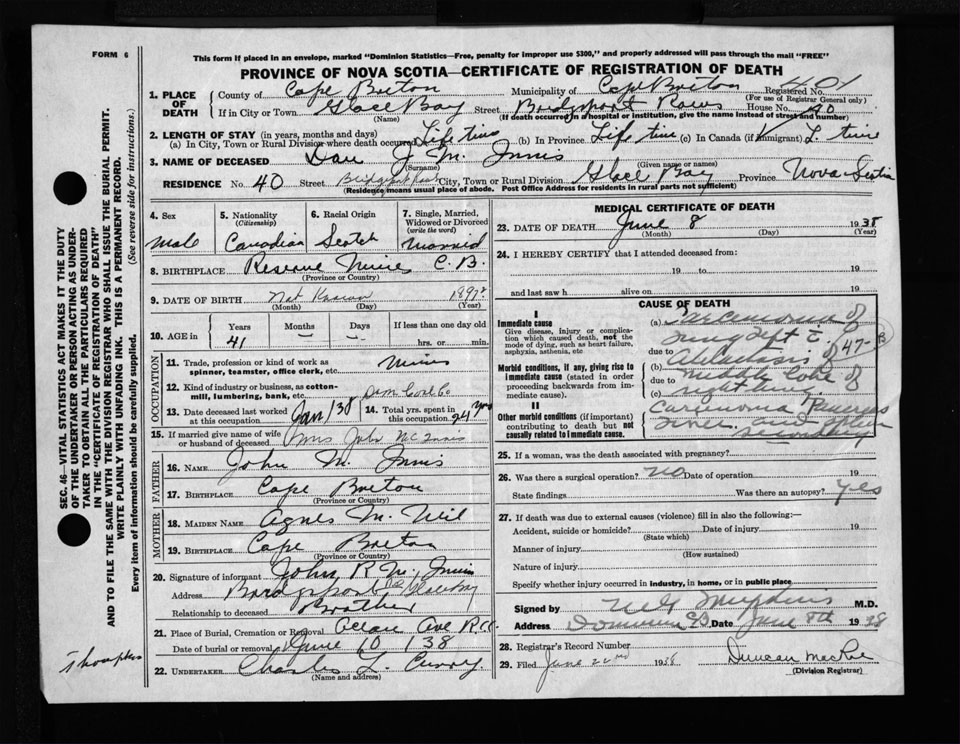 FORM 6
This form if placed in an envelope, marked "Dominion Statistics—Free, penalty for improper use $300," and properly addressed will pass through the mail "FREE"
PROVINCE OF NOVA SCOTIA—CERTIFICATE OF REGISTRATION OF DEATH
SEC. 46—VITAL STATISTICS ACT MAKES IT THE DUTY
OF THE UNDERTAKER OR PERSON ACTING AS UNDER-
TAKER TO OBTAIN ALL THE PARTICULARS REQUIRED
IN THE "CERTIFICATE OF REGISTRATION OF DEATH"
AND TO FILE THE SAME WITH THE DIVISION REGISTRAR WHO SHALL ISSUE THE BURIAL PERMIT.
WRITE PLAINLY WITH UNFADING INK. THIS IS A PERMANENT RECORD.
Every item of information should be carefully supplied. (See reverse side for instructions.)
1. PLACE OF DEATH County of Cape Breton Municipality of Cape Breton Registered No. 401
(For use of Registrar General only)
If in City or Town Glace Bay Street Bridgeport Rows House No. 40
(Name) (If death occurred in a hospital or institution, give the name instead of street and number)
2. LENGTH OF STAY (in years, months and days)
(a) In City, Town or Rural Division where death occurred Life time (b) In Province Life time (c) In Canada (if immigrant) L. time
3. NAME OF DECEASED Dan J. Mc Innis
(Surname) (Given name or names)
RESIDENCE No. 40 Street Bridgeport Rows City, Town or Rural Division Glace Bay Province Nova Scotia
(Residence means usual place of abode. Post Office Address for residents in rural parts not sufficient)
4. Sex Male
5. Nationality (Citizenship) Canadian
6. Racial Origin Scotch
7. Single, Married, Widowed or Divorced (write the word) Married
8. BIRTHPLACE Reserve Mines C. B.
(Province or Country)
9. DATE OF BIRTH Not Known 1897
(Month) (Day) (Year)
10. AGE in Years 41 Months — Days — If less than one day old hrs. or min.
OCCUPATION
11. Trade, profession or kind of work as spinner, teamster, office clerk, etc. Miner
12. Kind of industry or business, as cotton-mill, lumbering, bank, etc. Dom Coal Co
13. Date deceased last worked at this occupation Jan 1 38
14. Total yrs. spent in this occupation 24 yrs
15. If married give name of wife or husband of deceased Mrs John McInnis
FATHER
16. NAME John Mc Innis
17. BIRTHPLACE Cape Breton
(Province or Country)
MOTHER
18. MAIDEN NAME Agnes Mc Neil
19. BIRTHPLACE Cape Breton
(Province or Country)
20. Signature of informant John R Mc Innis
Address Bridgeport Glace Bay
Relationship to deceased Brother
21. Place of Burial, Cremation or Removal Ocean Ave R.C.
Date of burial or removal June 10 138
22. UNDERTAKER Charles L. Curry
(Name and address)
MEDICAL CERTIFICATE OF DEATH
23. DATE OF DEATH June 8 1938
(Month) (Day) (Year)
24. I HEREBY CERTIFY that I attended deceased from:
19 to 19
and last saw h alive on 19
CAUSE OF DEATH
I
Immediate cause
Give disease, injury or complication which caused death, not the mode of dying, such as heart failure, asphyxia, asthenia, etc
(a) Carcinoma of
Lung left &
due to
Morbid conditions, if any, giving rise to immediate cause (stated in order proceeding backwards from immediate).
(b) Atelectasis of 47-B
due to middle lobe of
(c) right lung
II
Other morbid conditions (if important) contributing to death but not causally related to immediate cause.
Carcinoma
liver and
secondary
25. If a woman, was the death associated with pregnancy?
26. Was there a surgical operation? no Date of operation 19
State findings Was there an autopsy? yes
27. If death was due to external causes (violence) fill in also the following:—
Accident, suicide or homicide? Date of injury 19
(State which)
Manner of injury
(How sustained)
Nature of injury
Specify whether injury occurred in industry, in home, or in public place
Signed by M.D.
Address Dominion CB Date June 8th 1938
28. Registrar's Record Number
29. Filed June 22nd 1938 Duncan MacRae
(Division Registrar)